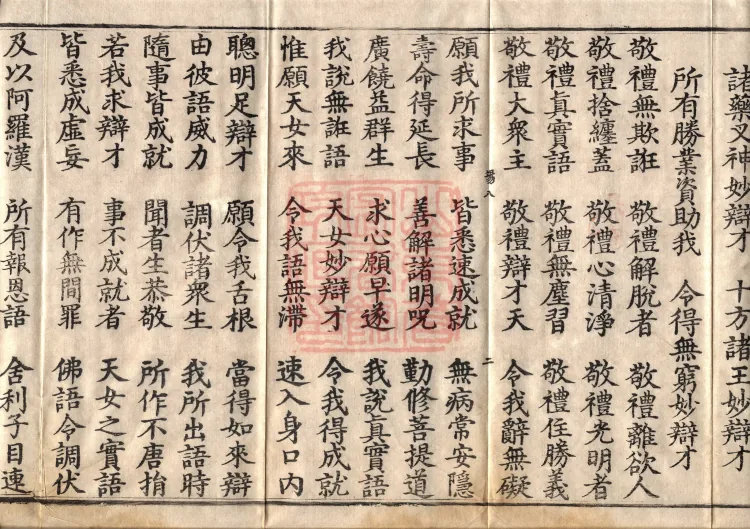 諸藥叉神妙辯才 十方諸王妙辯才
所有勝業資助我 令得無窮妙辯才
敬禮無欺誑 敬禮解脫者 敬禮離欲人
敬禮捨纏蓋 敬禮心清淨 敬禮光明者
敬禮真實語 敬禮無塵習 敬禮住勝義
敬禮大衆主 敬禮辯才天 令我辭無礙
八 二
願我所求事 皆悉速成就 無病常安隱
壽命得延長 善解諸明呪 勤修菩提道
廣饒益群生 求心願早遂 我說真實語
我說無誑語 天女妙辯才 令我得成就
惟願天女來 令我語無滯 速入身口內
聰明足辯才 願令我舌根 當得如來辯
由彼語威力 調伏諸衆生 我所出語時
隨事皆成就 聞者生恭敬 所作不唐捐
若我求辯才 事不成就者 天女之實語
皆悉成虛妄 有作無間罪 佛語令調伏
及以阿羅漢 所有報恩語 舍利子目連